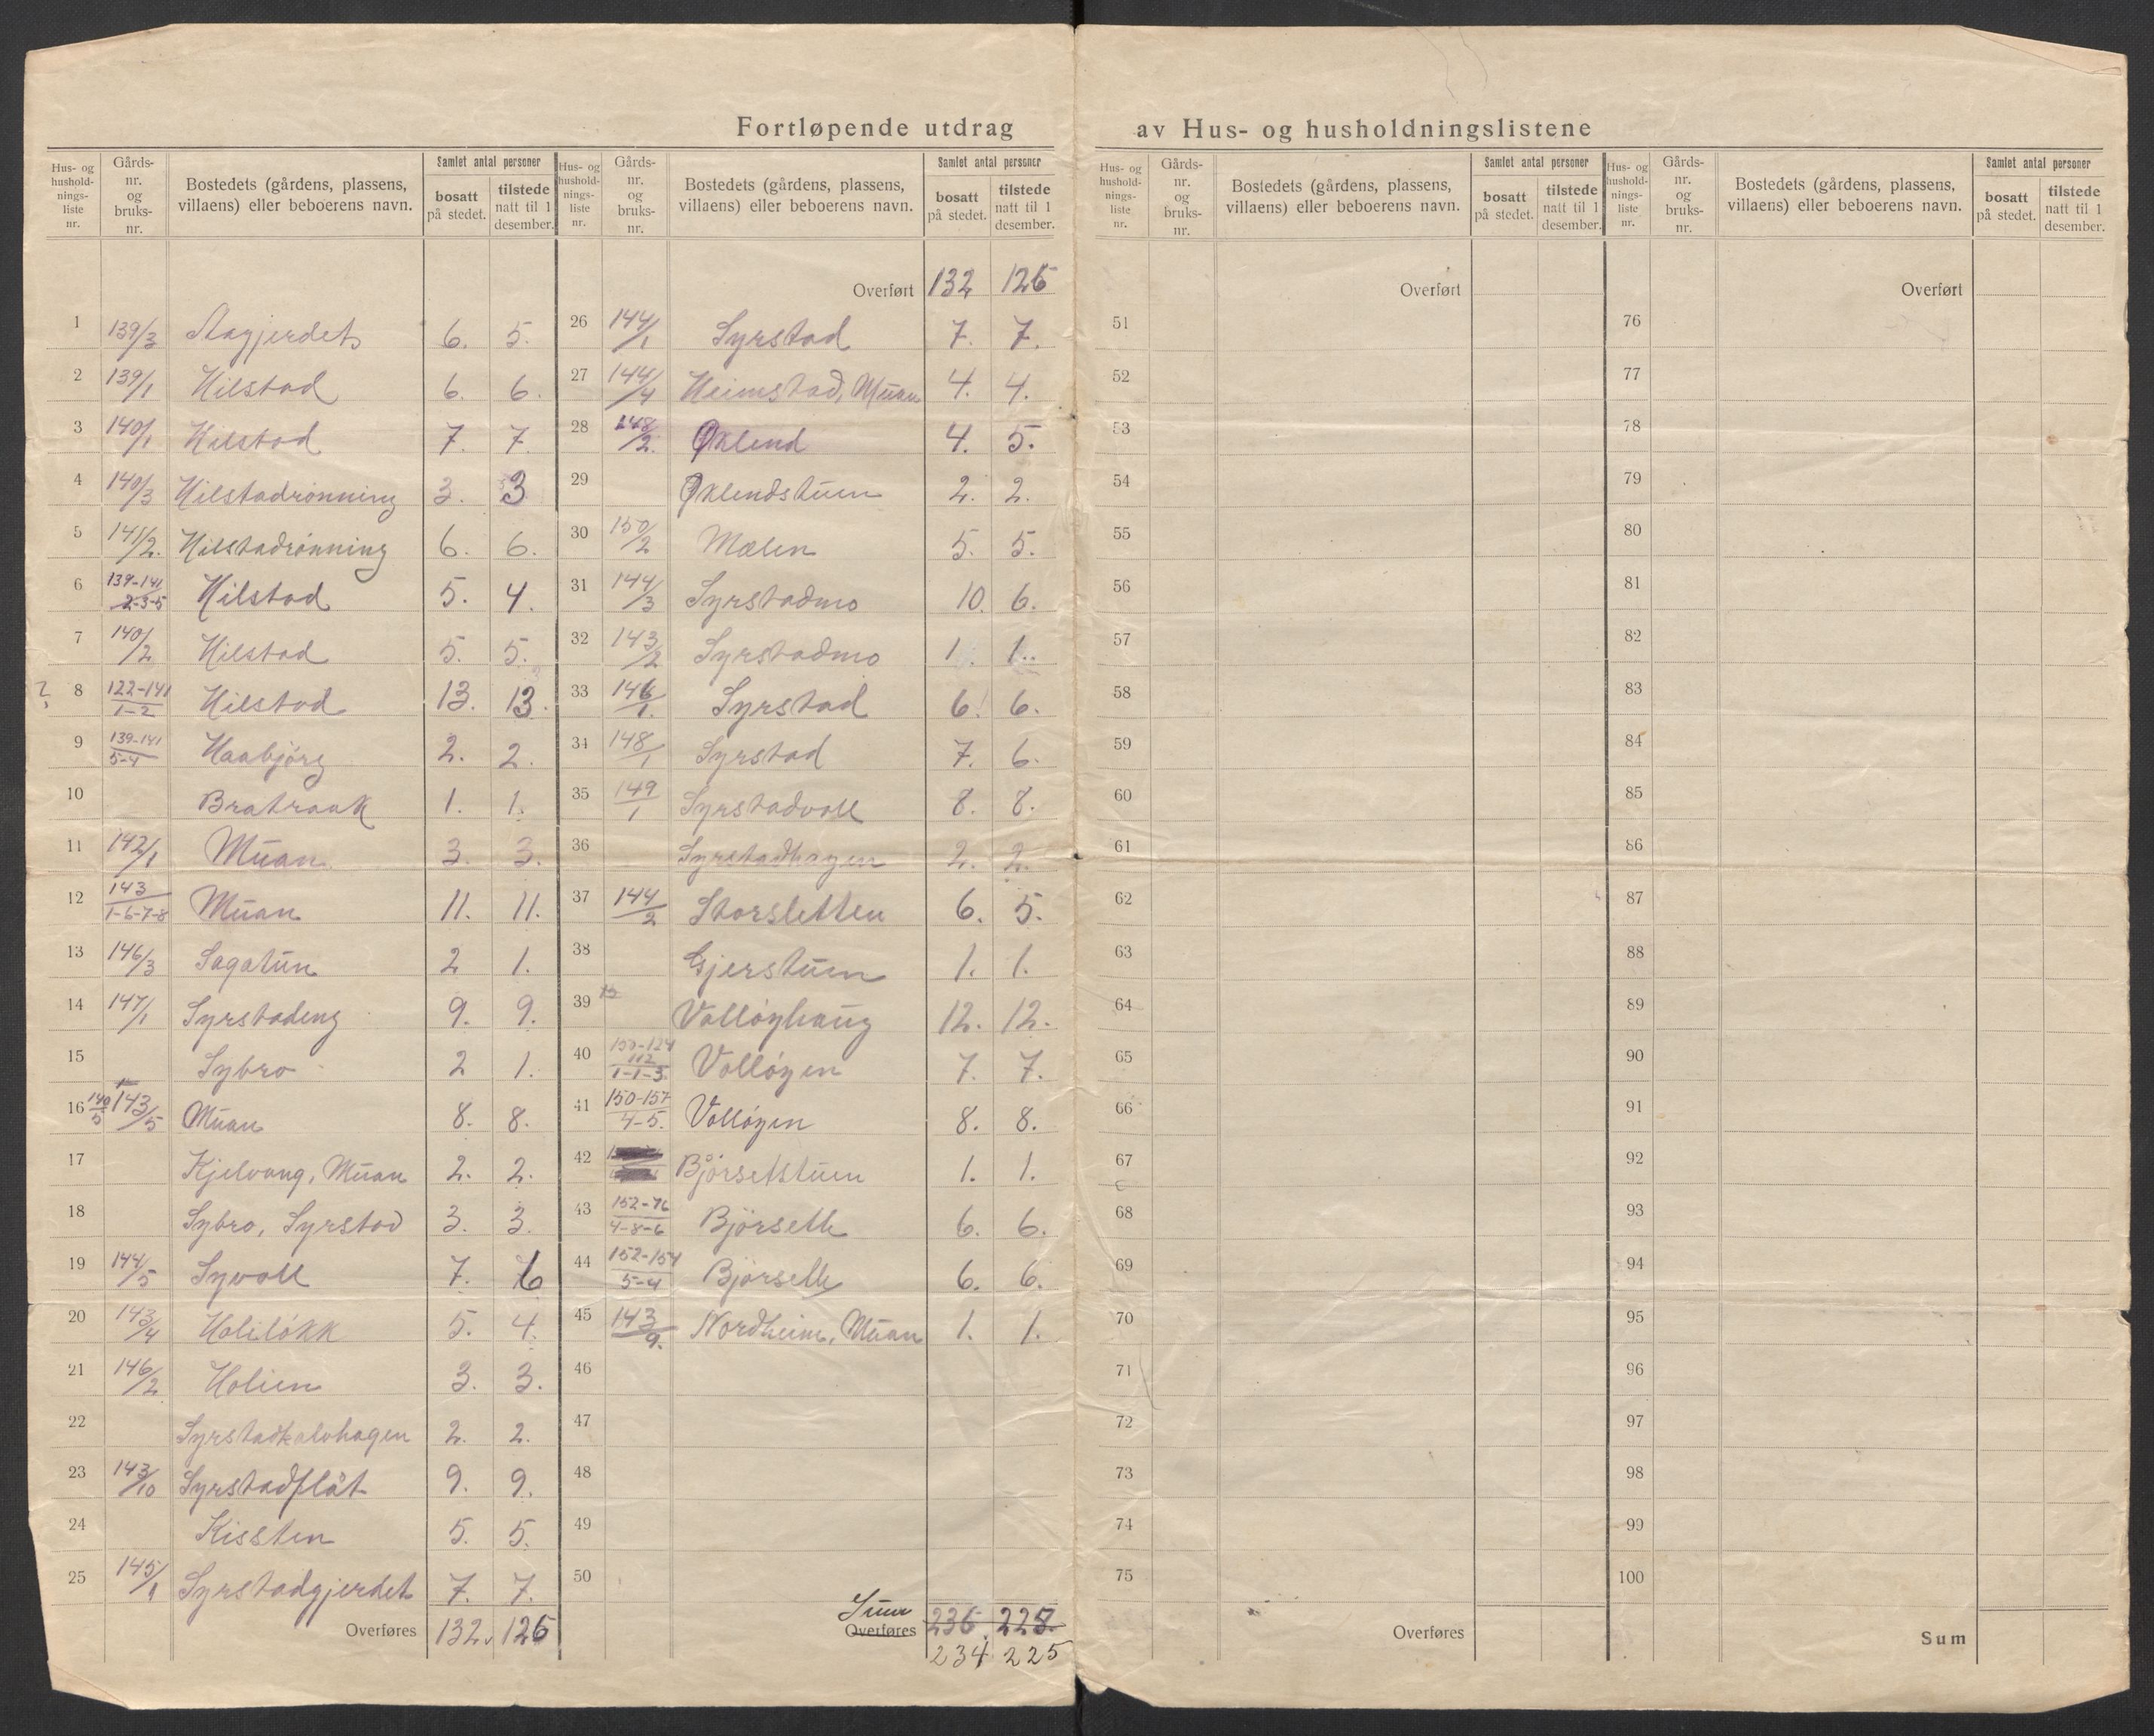 Fortløpende utdrag av Hus- og husholdningslistene
Hus- og hushold-nings-liste nr. Gårds-nr. og bruks-nr. Bostedets (gårdens, plassens, villaens) eller beboerens navn. Samlet antal personer bosatt på stedet. tilstede natt til 1 desember.
1 139/3 Aagjerdet 6. 5.
2 139/1 Hilstad 6. 6.
3 140/1 Hilstad 7. 7.
4 140/3 Hilstadrønning 3. 3
5 141/2. Hilstadrønning 6. 6.
6 139-141 2-3-5 Hilstad 5. 4.
7 140/2 Hilstad 5. 5.
? 8 122-141 1-2 Hilstad 13. 13.
9 139-141 5-4 Haabjørg 2. 2.
10 Bratraak 1. 1.
11 142/1 Muan 3. 3.
12 143 1-6-7-8 Muan 11. 11.
13 146/3 Sagatun 2 1.
14 147/1 Syrstadeng 9. 9.
15 Sybro 2 1.
16 140/5 143/5 Muan 8. 8.
17 Kjelvang, Muan 2. 2.
18 Sybro, Syrstad 3. 3.
19 144/5 Syvoll 7. 6
20 143/4 Holiløkk 5. 4.
21 146/2 Holien 3. 3.
22 Syrstadkalvhagen 2. 2.
23 143/10 Syrstadflåt 9. 9.
24 Kissten 5. 5.
25 145/1 Syrstadgjerdet 7. 7.
Overføres 132. 126
Hus- og hushold-nings-liste nr. Gårds-nr. og bruks-nr. Bostedets (gårdens, plassens, villaens) eller beboerens navn. Samlet antal personer bosatt på stedet. tilstede natt til 1 desember.
Overført 132 126
26 144/1 Syrstad 7. 7.
27 144/4 Heimstad, Muan 4. 4.
28 148/2. Øklend 4. 5.
29 Øklendstuen 2. 2.
30 150/2 Mælen 5. 5.
31 144/3 Syrstadmo 10. 6.
32 143/2 Syrstadmo 1. 1.
33 146/1. Syrstad 6. 6.
34 148/1 Syrstad 7. 6.
35 149/1 Syrstadvoll 8. 8.
36 Syrstadhagen 2. 2.
37 144/2 Storsletten 6. 5.
38 Gjerstuen 1. 1.
39 Volløyhaug 12. 12.
40 150-124 112 1-1-3 Volløyen 7. 7.
41 150-157 4-5. Volløyen 8. 8.
42 Bjørsetstuen 1. 1.
43 152-76 4-8-6 Bjørseth 6. 6.
44 152-154 5-4 Bjørseth 6. 6.
45 143/9. Nordheim, Muan 1. 1.
46
47
48
49
50
Sum Overføres 236. 228.
234 225
Hus- og hushold-nings-liste nr. Gårds-nr. og bruks-nr. Bostedets (gårdens, plassens, villaens) eller beboerens navn. Samlet antal personer bosatt på stedet. tilstede natt til 1 desember.
Overført
51
52
53
54
55
56
57
58
59
60
61
62
63
64
65
66
67
68
69
70
71
72
73
74
75
Overføres
Hus- og hushold-nings-liste nr. Gårds-nr. og bruks-nr. Bostedets (gårdens, plassens, villaens) eller beboerens navn. Samlet antal personer bosatt på stedet. tilstede natt til 1 desember.
Overført
76
77
78
79
80
81
82
83
84
85
86
87
88
89
90
91
92
93
94
95
96
97
98
99
100
Sum